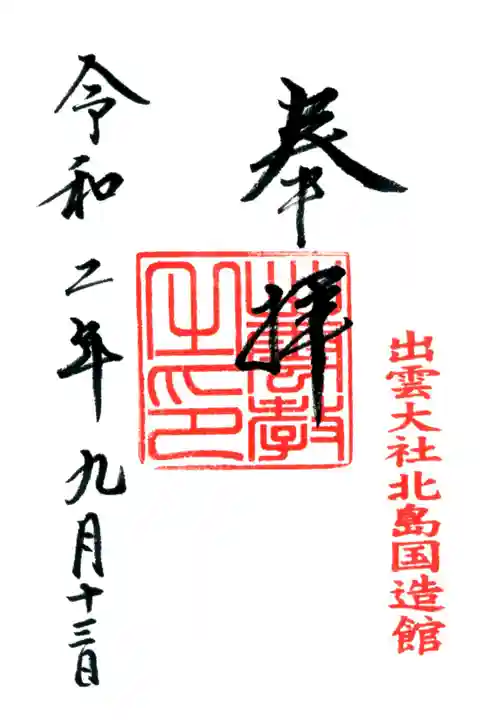 出雲大社北島国造館
奉拝
出雲教之印
令和二年九月十三日